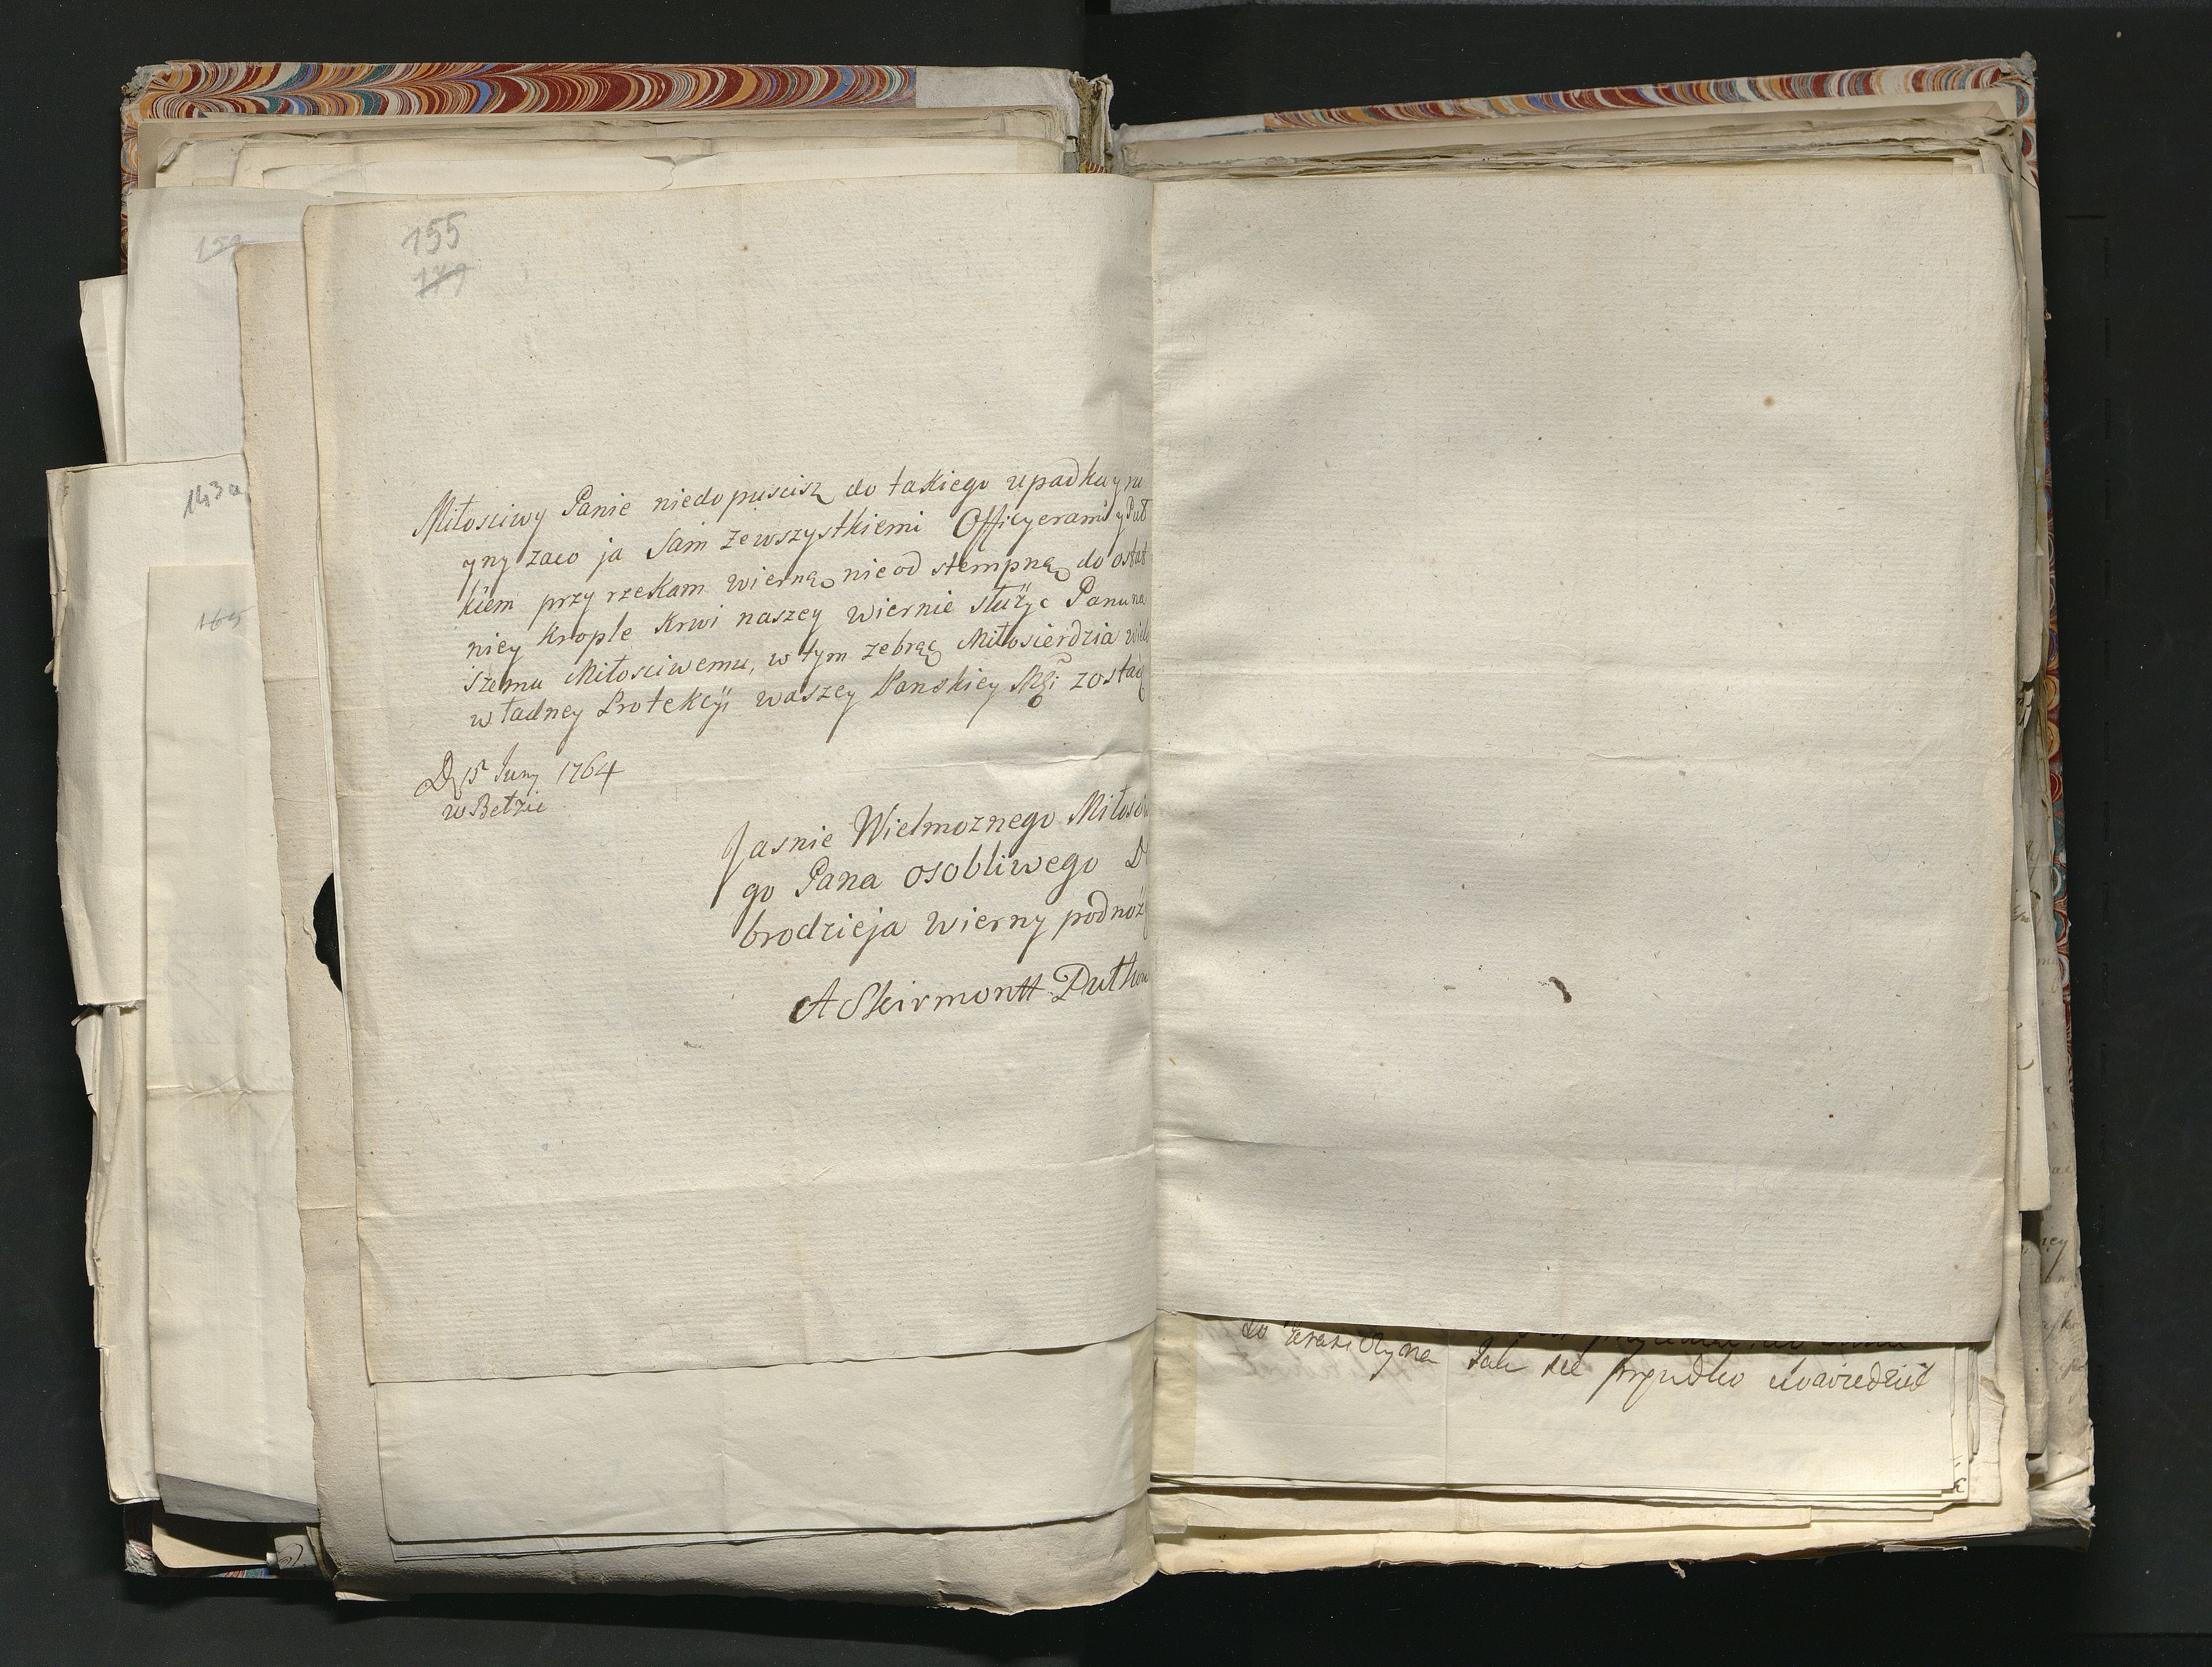 155
179
143a
165
Miłosciwy Panie niedopuscisz do takiego upadku y ru
yny zaco ja Sam zewszystkiemi Officyerami y Puł
kiem przy rzekam wierną nieod stempną do ostat
niey Krople Krwi naszey wiernie służyc Panu na
szemu Miłosciwemu, w tym zebrąc Miłosierdzia
władney Protekcyi waszey Panskiey Mci zostaię
D 15 Juny 1764
w Bełzie
Jasnie Wielmoznego Miłosci
go Pana osobliwego D
brodzieja wierny podnoż
A Skirmontt Pułkow
do na Jak